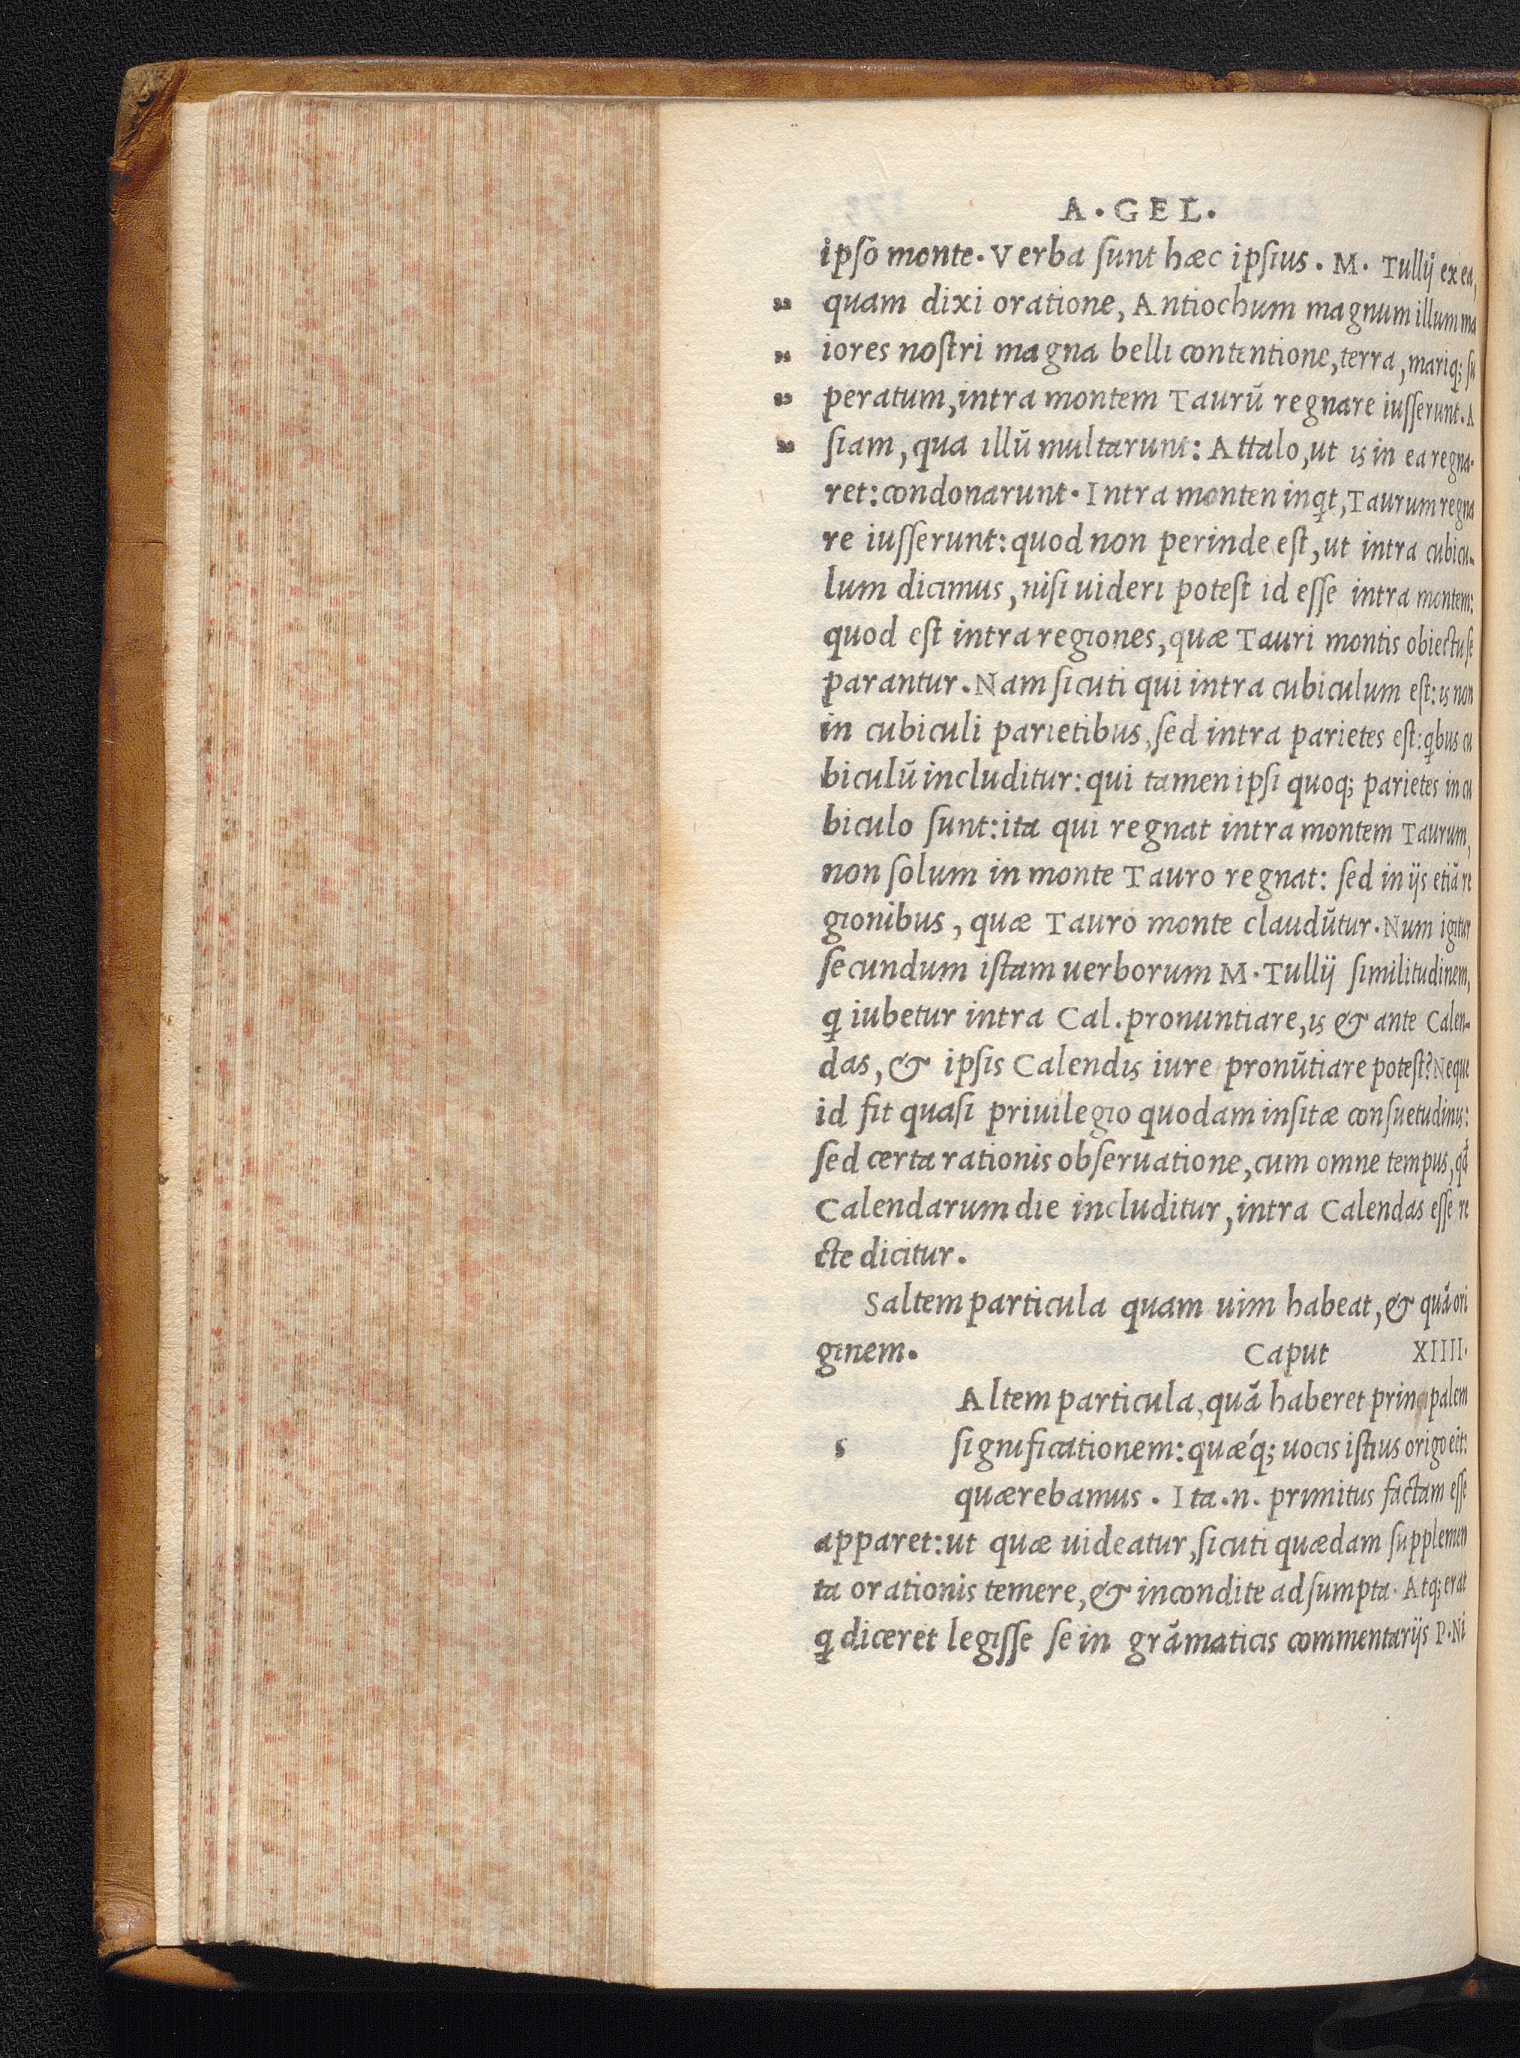 A. GEL.
ipso monte. Verba sunt hæc ipsius. M. Tullij ex ea,
„ quam dixi oratione, Antiochum magnum illum ma
„ iores nostri magna belli contentione, terra, mariq; su
„ peratum, intra montem Taurū regnare iusserunt. A
„ siam, qua illū multarunt: Attalo, ut is in ea regna-
ret: condonarunt. Intra monten inqt, Taurum regna
re iusserunt: quod non perinde est, ut intra cubicu-
lum dicimus, nisi uideri potest id esse intra montem:
quod est intra regiones, quæ Tauri montis obiectu se
parantur. Nam sicuti qui intra cubiculum est: is non
in cubiculi parietibus, sed intra parietes est: qbus cu
biculū includitur: qui tamen ipsi quoq; parietes in cu
biculo sunt: ita qui regnat intra montem Taurum,
non solum in monte Tauro regnat: sed in ijs etiā re
gionibus, quæ Tauro monte claudūtur. Num igitur
secundum istam uerborum M. Tullij similitudinem,
q iubetur intra Cal. pronuntiare, is & ante Calen-
das, & ipsis Calendis iure pronūtiare potest? Neque
id fit quasi priuilegio quodam insitæ consuetudinis:
sed certa rationis obseruatione, cum omne tempus, qđ
Calendarum die includitur, intra Calendas esse re
cte dicitur.
Saltem particula quam uim habeat, & quā ori
ginem. Caput XIIII.
s Altem particula, quā haberet principalem
significationem: quǽq; uocis istius origo eēt:
quærebamus. Ita.n. primitus factam esse
apparet: ut quæ uideatur, sicuti quædam supplemen
ta orationis temere, & incondite adsumpta. Atq; erat
q diceret legisse se in grāmaticis commentarijs P. Ni